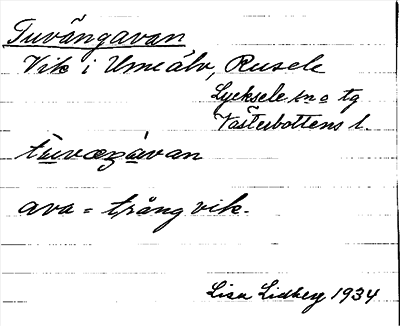 Tuvängavan
Vik i Ume älv, Rusele
Lycksele sn o tg
Västerbottens l.
tùvæŋàvan
ava = trång vik.
Lisa Lidberg 1934